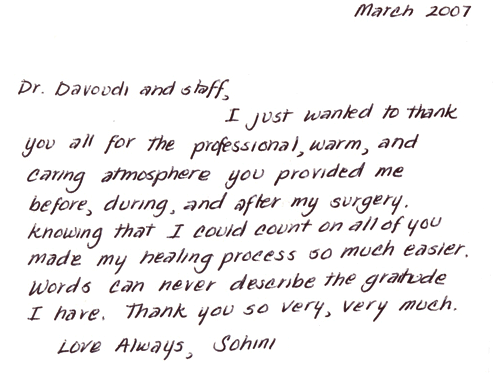 March 2007
Dr. Davoudi and staff,
I just wanted to thank
you all for the professional, warm, and
caring atmosphere you provided me
before, during, and after my surgery.
Knowing that I could count on all of you
made my healing process so much easier.
Words can never describe the gratitude
I have. Thank you so very, very much.
Love Always, Sohini